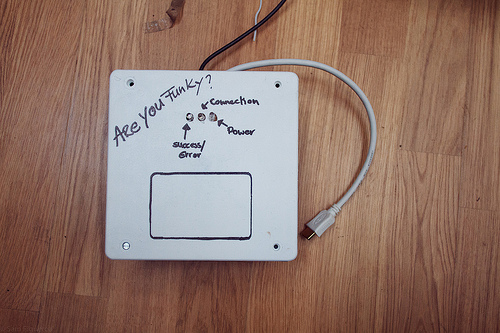 Are You Funky?
Connection
Power
success/
error